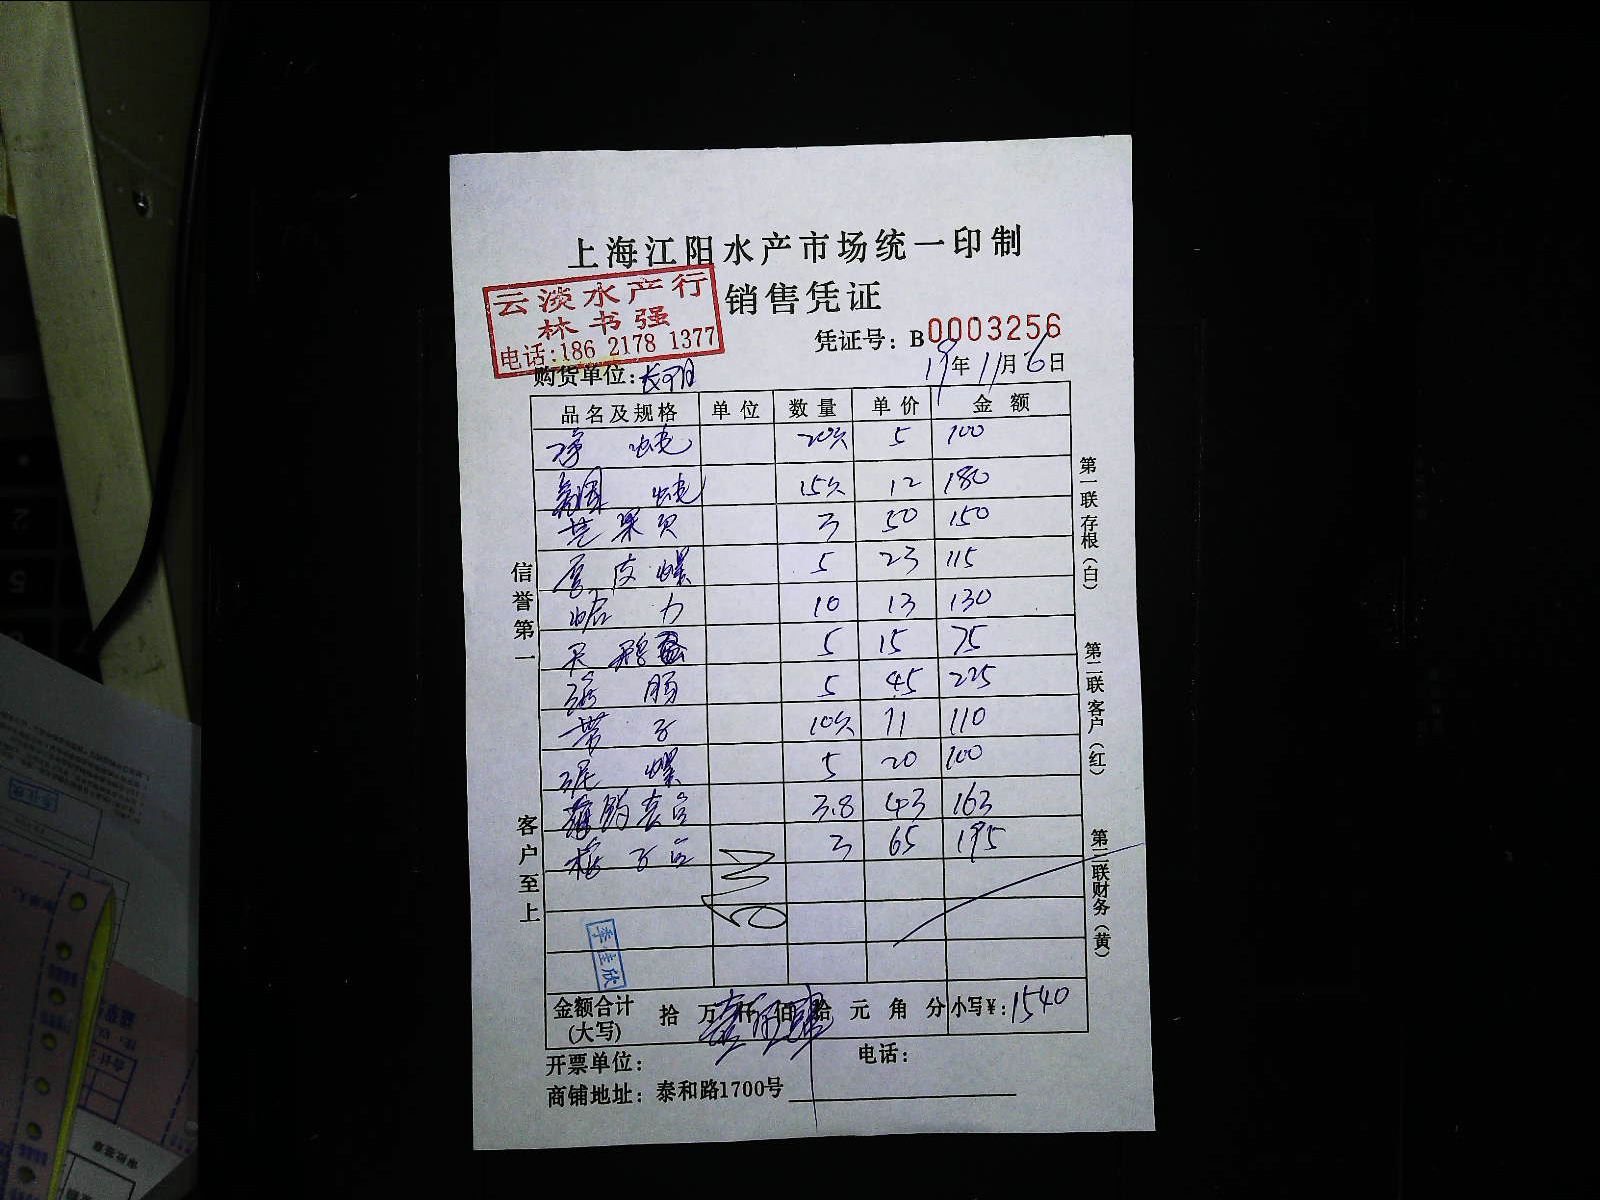 上海江阳水产市场统一印制
销售凭证
云淡水产行
林书强
电话:186 2178 1377
凭证号: B0003256
购货单位:
19年11月6日
品名及规格 单位 数量 单价 金额
20只 5 100
15只 12 180
芒果贝 3 50 150
厚皮螺 5 23 115
蛤力 10 13 130
5 15 75
5 45 225
带子 10只 11 110
泥螺 5 20 100
3.8 43 163
3 65 195
李佳欣
金额合计(大写) 拾 万 仟 佰 拾 元 角 分 小写¥: 1540
开票单位: 电话:
商铺地址: 泰和路1700号
信誉第一
客户至上
第一联存根(白)
第二联客户(红)
第三联财务(黄)